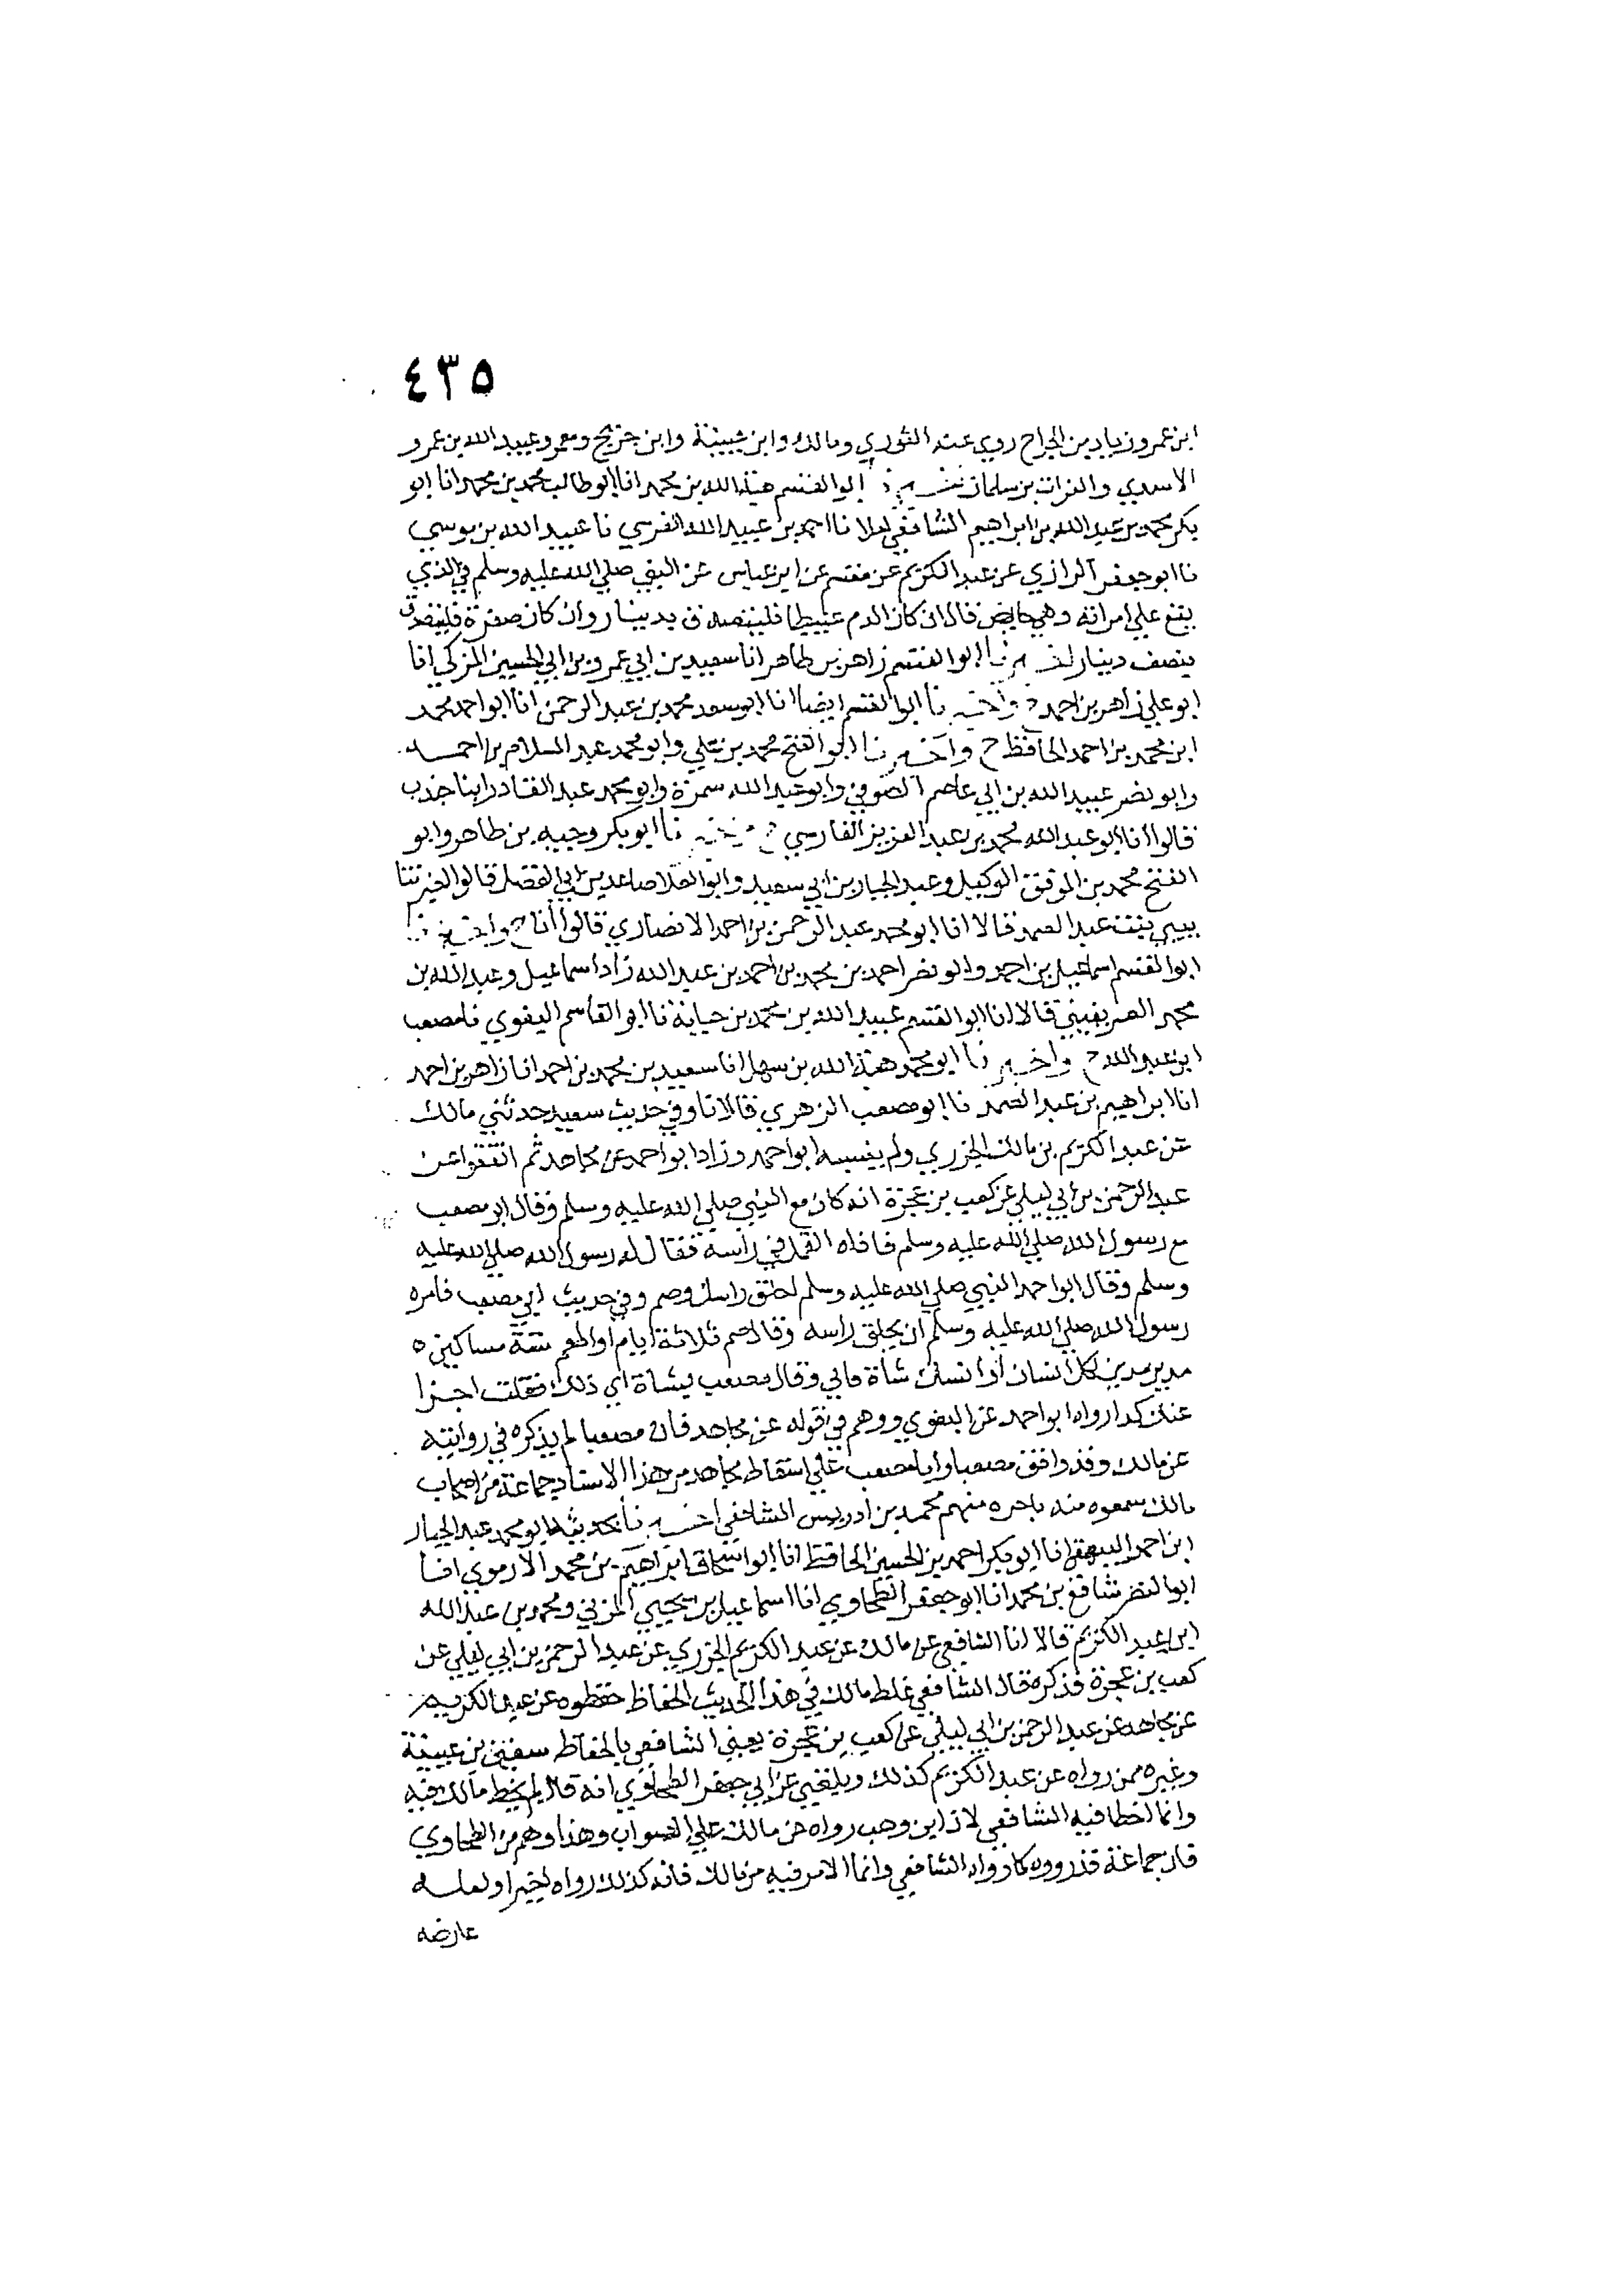 ٤٣٥
ابن عمرو زياد بن الجراح روي عنه الثوري ومالك وابن عيينة وابن جريج ومعمر وعبيد الله بن عمرو
الاسدي والفرات بن سلمان ابو القسم هبة الله بن محمد انا ابو طالب محمد بن محمد انا ابو
بكر محمد بن عبد الله بن ابراهيم الشافعي املا نا احمد بن عبيد الله النرسي نا عبيد الله بن موسي
نا ابو جعفر الرازي عن عبد الكريم عن مقسم عن ابن عباس عن النبي صلي الله عليه وسلم في الذي
يقع علي امراته وهي حايض قال ان كان الدم عبيطا فليتصدق بدينار وان كان صفرة فليتصدق
بنصف دينار ابو القسم زاهر بن طاهر انا سعيد بن ابي عمرو بن ابي الحسين المزكي انا
ابو علي زاهر بن احمد ح واخبرنا ابو القسم ايضا انا ابو سعد محمد بن عبد الرحمن انا ابو احمد محمد
ابن محمد بن احمد الحافظ ح واخبرنا ابو الفتح محمد بن علي وابو محمد عبد السلام بن احمد
وابو نصر عبيد الله بن ابي عاصم الصوفي وابو عبد الله سمرة وابو محمد عبد القادر ابنا جندب
قالوا انا ابو عبد الله محمد بن عبد العزيز الفارسي ح واخبرنا ابو بكر وجيه بن طاهر وابو
الفتح محمد بن الموفق الوكيل وعبد الجبار بن ابي سعيد وابو العلا صاعد بن ابي الفضل قالوا اخبرتنا
بيبي بنت عبد الصمد قالا انا ابو محمد عبد الرحمن بن احمد الانصاري قالوا انا ح واخبرنا
ابو القسم اسماعيل بن احمد وابو نصر احمد بن محمد بن احمد بن عبد الله زاد اسماعيل وعبد الله بن
محمد الصريفيني قالا انا ابو القسم عبيد الله بن محمد بن حبابة نا ابو القاسم البغوي نا مصعب
ابن عبد الله ح واخبرنا ابو محمد هبة الله بن سهل انا سعيد بن محمد بن احمد انا زاهر بن احمد
انا ابراهيم بن عبد الصمد نا ابو مصعب الزهري قالا نا وفي حديث سعيد حدثني مالك
عن عبد الكريم بن مالك الجزري ولم ينسبه ابو احمد وزاد ابو احمد عن مجاهد ثم اتفقوا عن
عبد الرحمن بن ابي ليلي عن كعب بن عجرة انه كان مع النبي صلي الله عليه وسلم وقال ابو مصعب
مع رسول الله صلي الله عليه وسلم فاذاه القمل في راسه فقال له رسول الله صلي الله عليه
وسلم وقال ابو احمد النبي صلي الله عليه وسلم احلق راسك وصم وفي حديث ابي مصعب فامره
رسول الله صلي الله عليه وسلم ان يحلق راسه وقال صم ثلاثة ايام او اطعم ستة مساكين ه
مدين مدين لكل انسان او انسك شاة وقال مصعب بشاة اي ذلك فعلت اجزا
عنك كذا رواه ابو احمد عن البغوي ووهم في قوله عن مجاهد فان مصعبا لم يذكره في روايته
عن مالك وقد وافق مصعبا وابا مصعب علي اسقاط مجاهد من هذا الاسناد جماعة من اصحاب
مالك سمعوه منه باخره منهم محمد بن ادريس الشافعي اخبرنا بحديثه ابو محمد عبد الجبار
ابن احمد البيهقي انا ابو بكر احمد بن الحسين الحافظ انا ابو اسحاق ابراهيم بن محمد الارموي انا
ابو النضر شافع بن محمد انا ابو جعفر الطحاوي انا اسماعيل بن يحيي المزني ومحمد بن عبد الله
ابن عبد الكريم قالا انا الشافعي عن مالك عن عبد الكريم الجزري عن عبد الرحمن بن ابي ليلي عن
كعب بن عجرة فذكره قال الشافعي غلط مالك في هذا الحديث الحفاظ حفظوه عن عبد الكريم
عن مجاهد عن عبد الرحمن بن ابي ليلي عن كعب بن عجرة يعني الشافعي بالحفاظ سفين بن عيينة
وغيره ممن رواه عن عبد الكريم كذلك وبلغني عن ابي جعفر الطحاوي انه قال لم يخط مالك فيه
وانما اخطا فيه الشافعي لان ابن وهب رواه عن مالك علي الصواب وهذا وهم من الطحاوي
فان جماعة قد رووه كما رواه الشافعي وانما الامر فيه من مالك فانه كذلك رواه اخيرا ولعله
عارضه